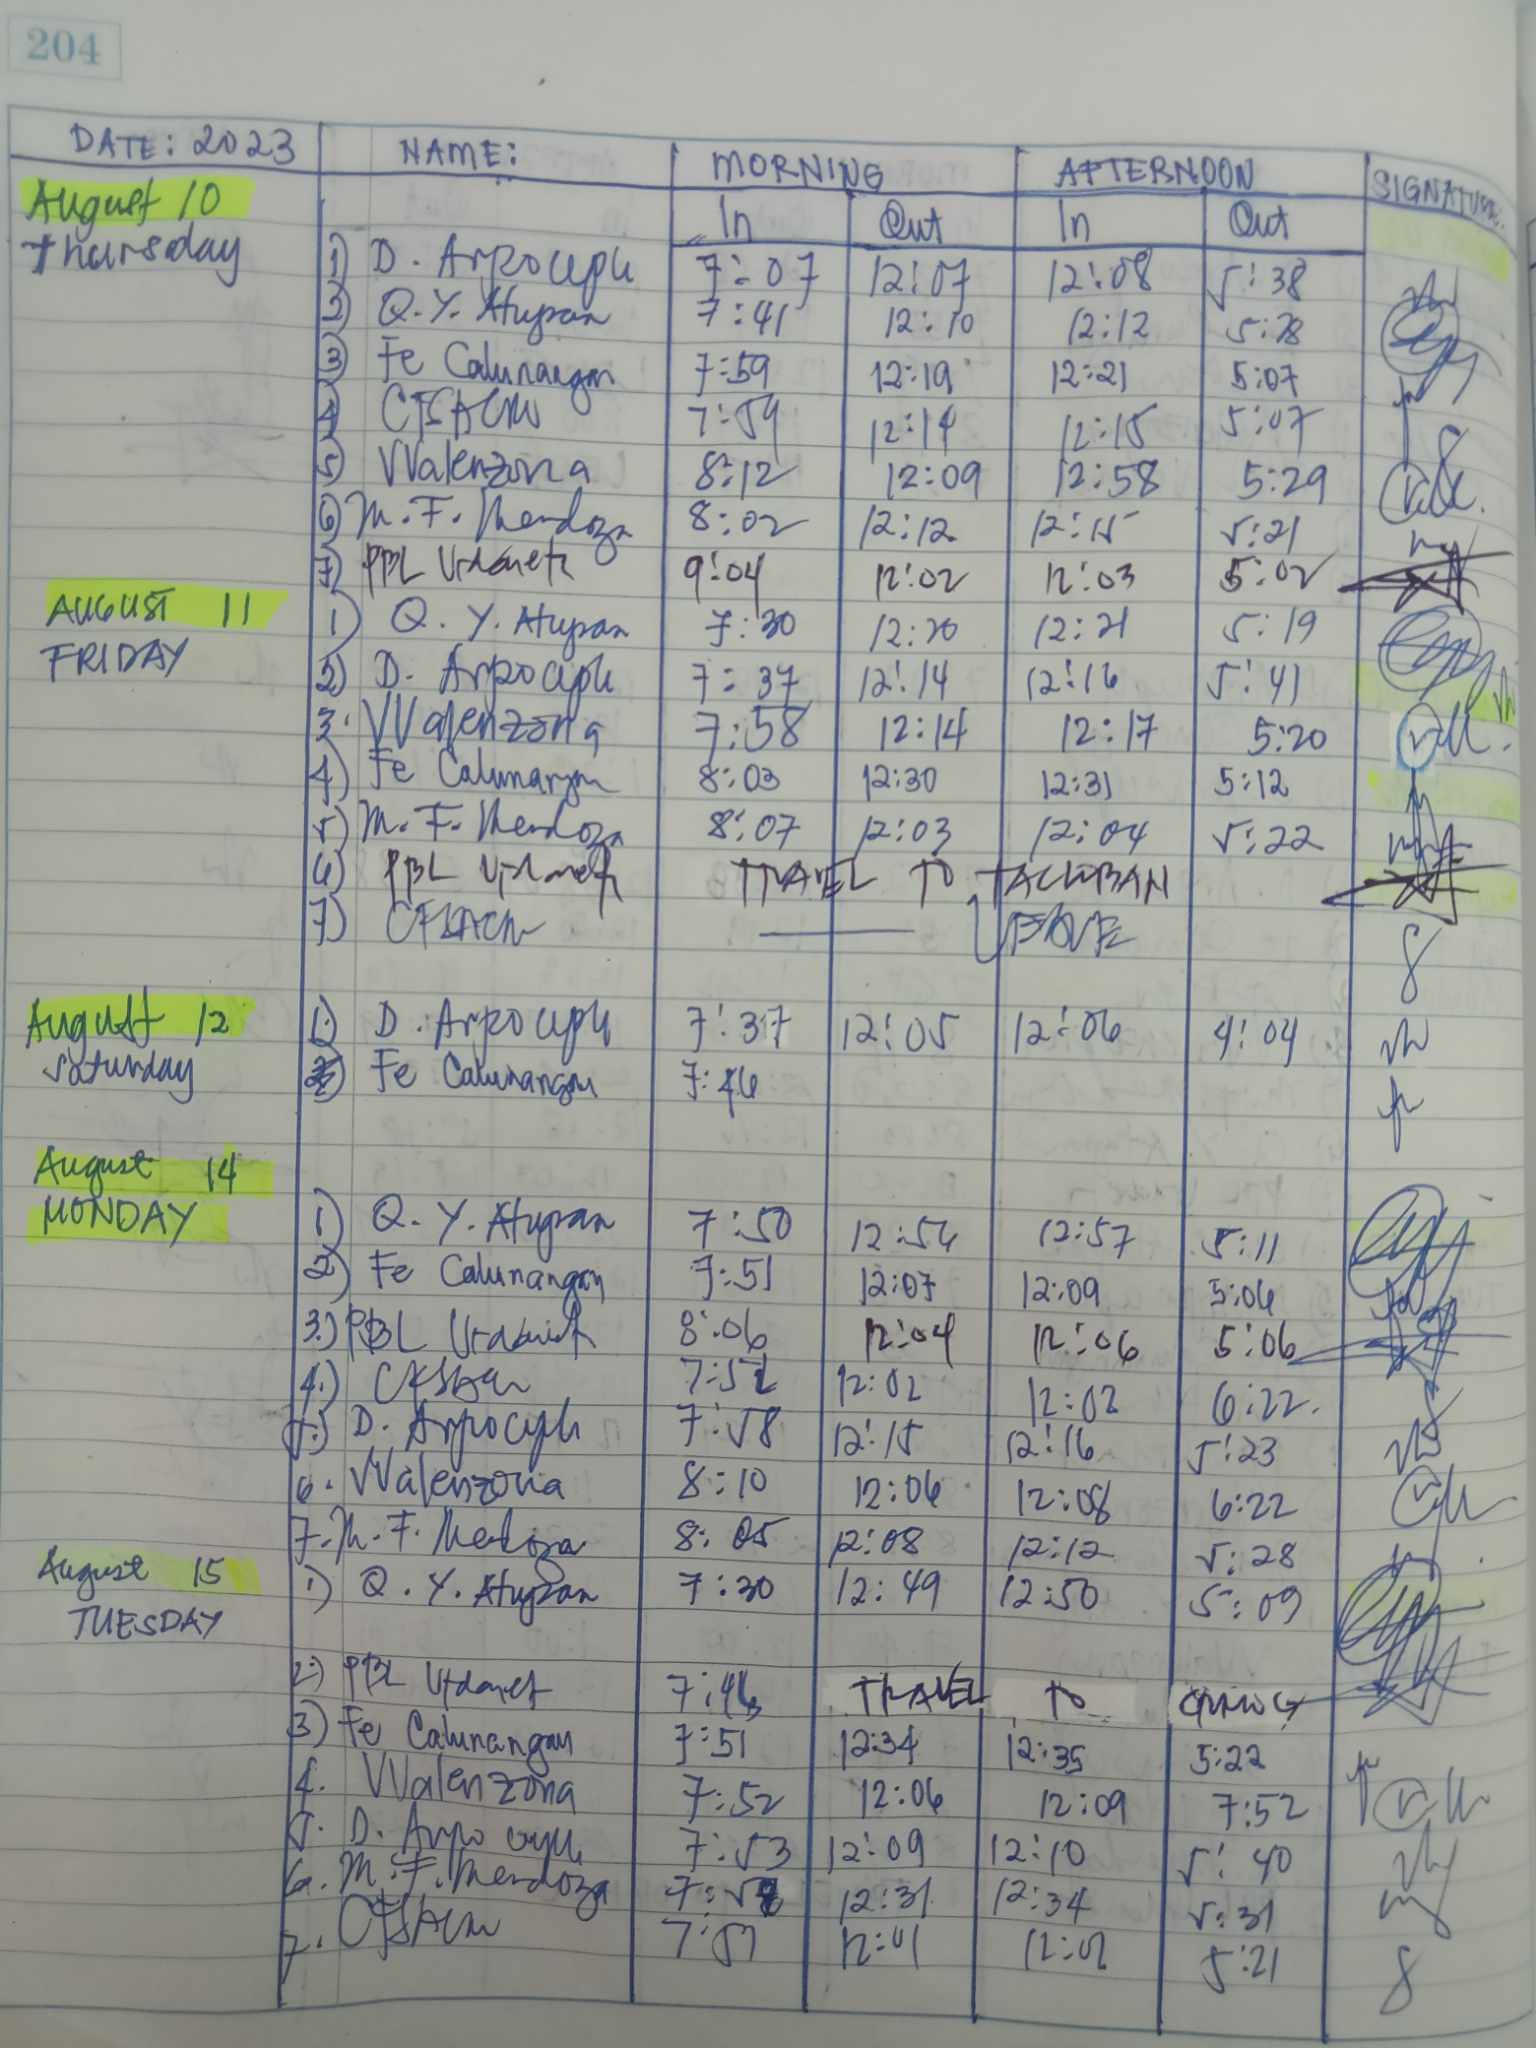 204
DATE: 2023 NAME: MORNING AFTERNOON SIGNATURE
In Out In Out
August 10
Thursday
1) D. 7:07 12:07 12:08 5:38
2) Q. Y. Atupan 7:41 12:10 12:12 5:28
3) Fe Calunangan 7:59 12:19 12:21 5:07
4) 7:54 12:14 12:15 5:07
5) VValenzona 8:12 12:09 12:58 5:29
6) M. F. Mendoza 8:02 12:12 12:15 5:21
7) PBL 9:04 12:02 12:03 5:02
AUGUST 11
FRIDAY
1) Q. Y. Atupan 7:30 12:20 12:21 5:19
2) D. 7:37 12:14 12:16 5:41
3. VValenzona 7:58 12:14 12:17 5:20
4) Fe Calunangan 8:03 12:30 12:31 5:12
5) M. F. Mendoza 8:07 12:03 12:04 5:22
6) PBL TRAVEL TO TACLOBAN
7) LEAVE
August 12
Saturday
1) D. 7:37 12:05 12:06 4:04
Fe Calunangan 7:46
August 14
MONDAY
1) Q. Y. Atupan 7:50 12:56 12:57 5:11
2) Fe Calunangan 7:51 12:07 12:09 5:06
3.) PBL 8:06 12:04 12:06 5:06
4.) 7:52 12:02 12:02 6:22.
5.) D. 7:58 12:15 12:16 5:23
6. VValenzona 8:10 12:06 12:08 6:22
7. M. F. Mendoza 8:05 12:08 12:12 5:28
August 15
TUESDAY
1) Q. Y. Atupan 7:30 12:49 12:50 5:09
2.) PBL 7:46 TRAVEL TO ORMOC
3) Fe Calunangan 7:51 12:34 12:35 5:22
4. VValenzona 7:52 12:06 12:09 7:52
5. D. 7:53 12:09 12:10 5:40
6. M. F. Mendoza 12:31 12:34 5:31
7. 12:01 12:02 5:21